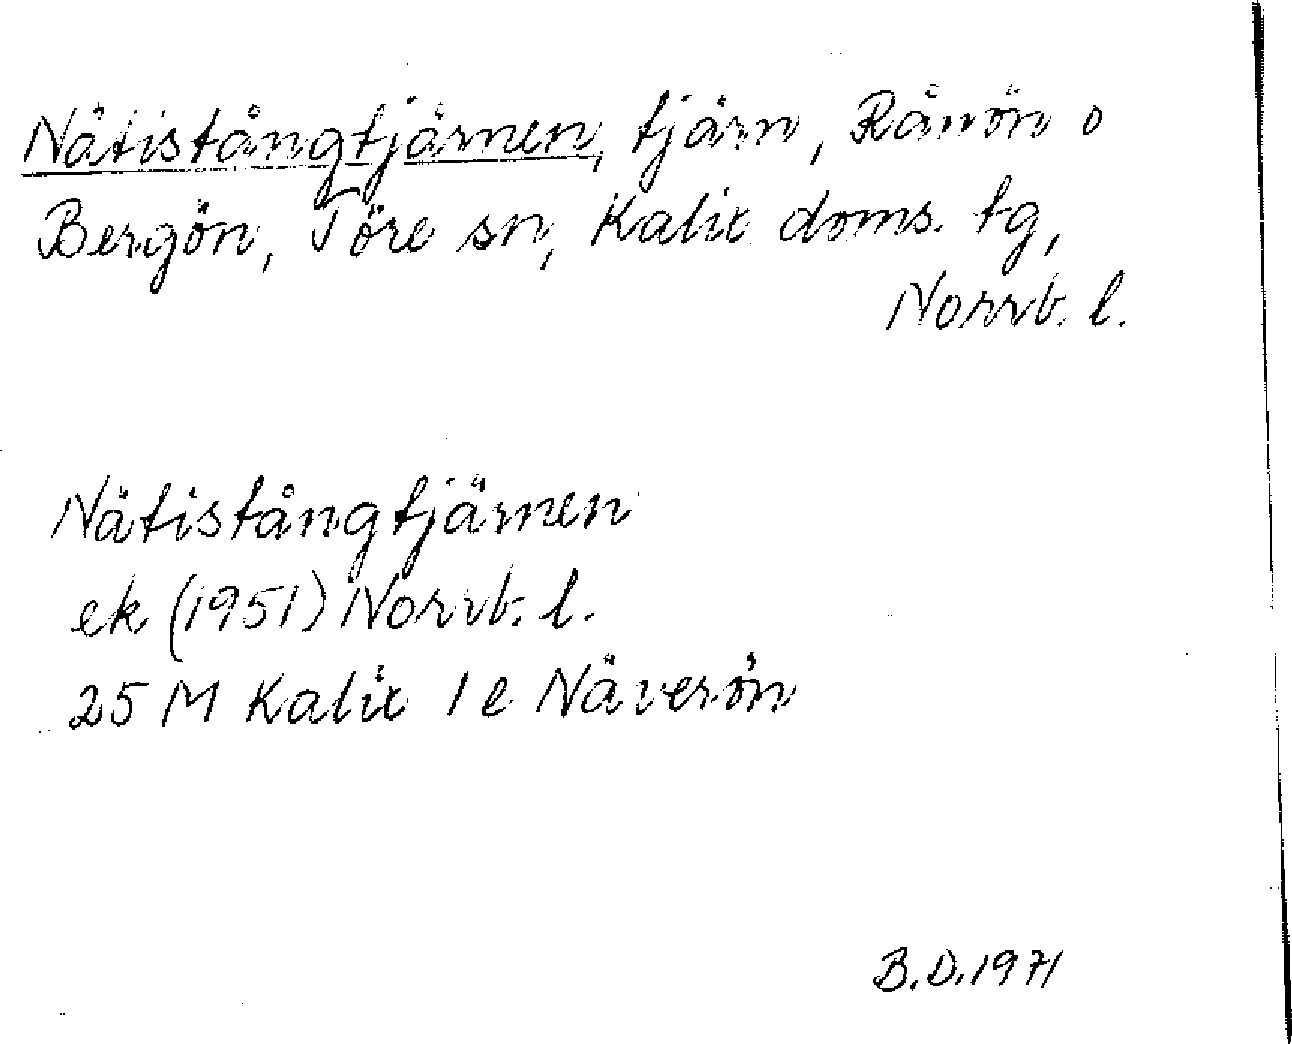 Nätistångtjärnen, tjärn, Rånön o
Bergön, Töre sn, Kalix doms. tg,
Norrb. l.
Nätistångtjärnen
ek (1951) Norrb. l.
25 M Kalix 1 e Näverön
B.D. 1971